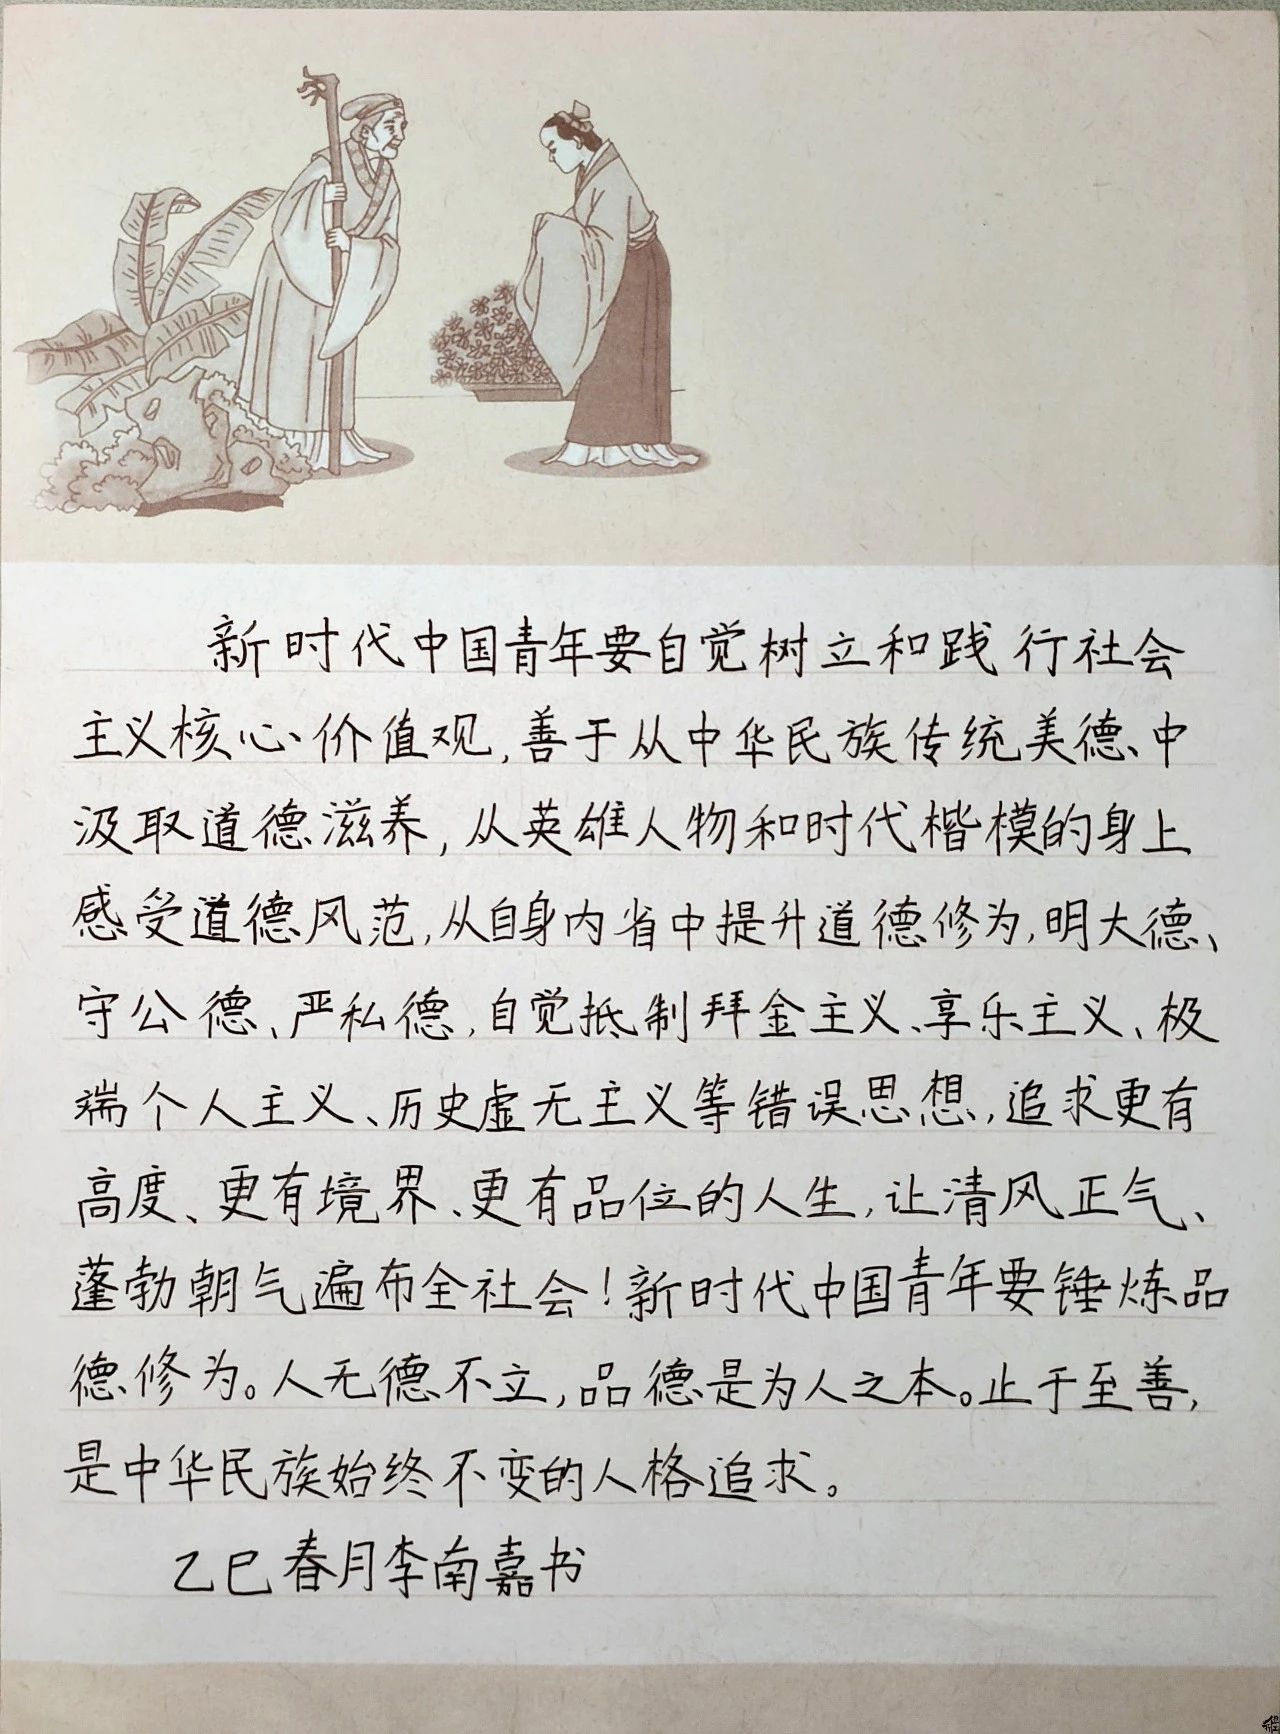 新时代中国青年要自觉树立和践行社会
主义核心价值观,善于从中华民族传统美德中
汲取道德滋养,从英雄人物和时代楷模的身上
感受道德风范,从自身内省中提升道德修为,明大德、
守公德、严私德,自觉抵制拜金主义、享乐主义、极
端个人主义、历史虚无主义等错误思想,追求更有
高度、更有境界、更有品位的人生,让清风正气、
蓬勃朝气遍布全社会!新时代中国青年要锤炼品
德修为。人无德不立,品德是为人之本。止于至善,
是中华民族始终不变的人格追求。
乙巳春月李南嘉书